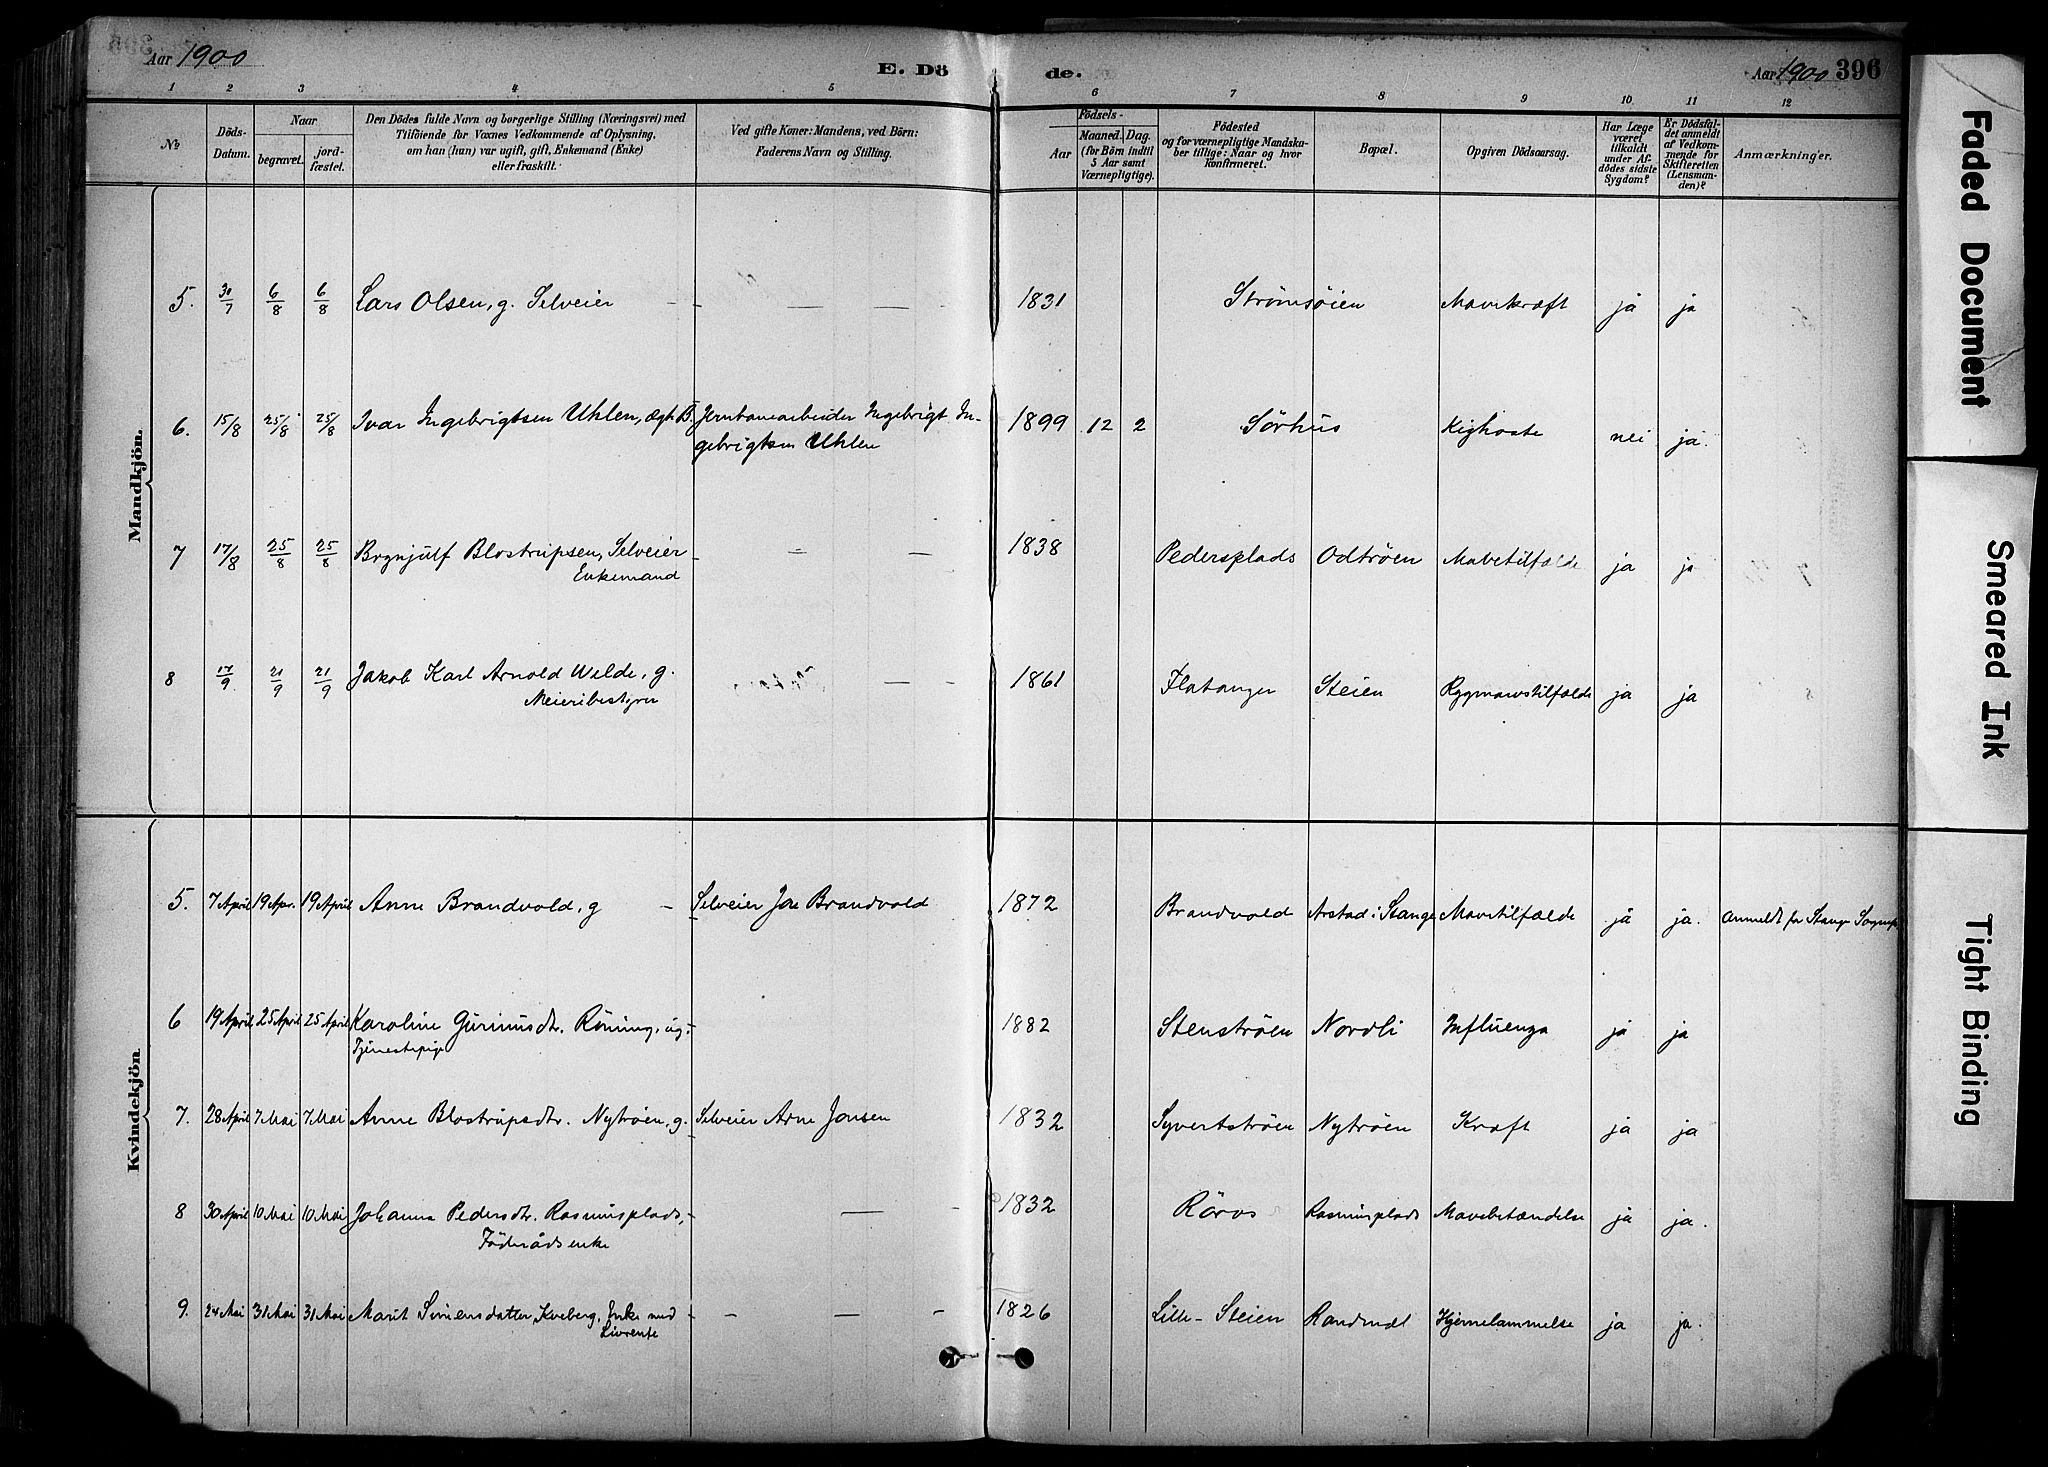 Aar 1900
E. Dö
de.
Aar 1900
396
1 2 3 4 5 6 7 8 9 10 11 12
№
Döds-
Datum.
Naar
begravet.
jord-
fæstet.
Den Dödes fulde Navn og borgerlige Stilling (Næringsvei) med
Tilföiende for Voxnes Vedkommende af Oplysning,
om han (hun) var ugift, gift, Enkemand (Enke)
eller fraskilt.
Ved gifte Koner: Mandens, ved Börn:
Faderens Navn og Stilling.
Födsels-
Aar
Maaned. Dag.
(for Börn indtil
5 Aar samt
Værnepligtige).
Födested
og for værnepligtige Mandska-
ber tillige: Naar og hvor
konfirmeret.
Bopæl.
Opgiven Dödsaarsag.
Har Læge
været
tilkaldt
under Af-
dödes sidste
Sygdom?
Er Dödsfal-
det anmeldt
af Vedkom-
mende for
Skifteretten
(Lensman-
den)?
Anmærkninger.
Mandkjön.
5. 30/7 6/8 6/8 Lars Olsen, g. Selveier - — — 1831 Strømsøien Mavekræft ja ja
6. 15/8 25/8 25/8 Ivar Ingebrigtsen Uhlen, ægte B. Jernbanearbeider Ingebrigt In-
gebrigtsen Uhlen 1899 12 2 Sørhus Kighoste nei ja.
7 17/8 25/8 25/8 Brynjulf Blostrupsen, Selveier - — — 1838 Pedersplads Odtrøen Mavetilfælde ja ja
Enkemand
8 17/9 21/9 21/9 Jakob Karl Arnold Welde, g. — - 1861 Flatanger Steien Rygmarvstilfælde ja ja
Meieribestyrer
Kvindekjön.
5. 7 April 19 Apr. 19 April Anne Brandvold, g - Selveier Jon Brandvold 1872 Brandvold Arstad i Stange Mavetilfælde ja ja. Anmeldt for Stange Sognepr
6 19 April 25 April 25 April Karoline Gurinusdtr. Röning, ug.- 1882 Stenstrøen Nordli Influenza ja ja
Tjenestepige
7. 28 April 7 Mai 7 Mai Anne Blostrupsdtr. Nytrøen, g. Selveier Arne Jonsen 1832 Syvertstrøen Nytrøen Kræft ja ja
8 30 April 10 Mai 10 Mai Johanna Pedersdtr. Rasmusplads, - — - 1832 Röros Rasmusplads Mavebetændelse ja ja.
Föderådsenke
9. 24 Mai 31 Mai 31 Mai Marit Simensdatter Kveberg, Enke med - — - 1826 Lille-Steien Randmæl Hjernelammelse ja ja.
Livrente
Faded Document
Smeared Ink
Tight Binding